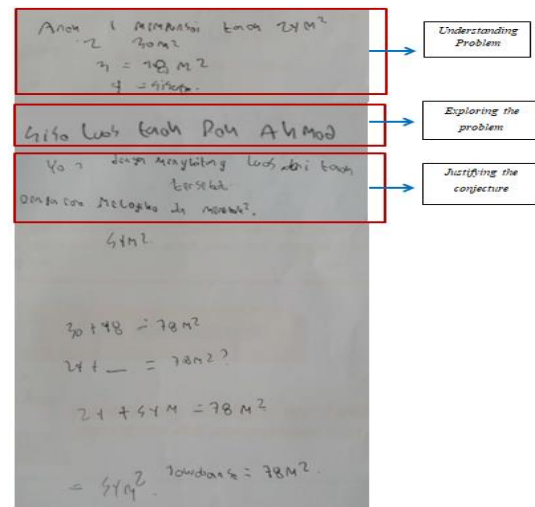 Anak 1 mempunyai tanah 24 m²
2 30 m²
3 = 48 m²
4 = sisanya.
Understanding Problem
Sisa luas tanah Pak Ahmad
Exploring the problem
Ya, dengan menghitung luas dari tanah
tersebut
dengan cara
Justifying the conjecture
54 m²
30 + 48 = 78 m²
24 + __ = 78 m²?
24 + 54 m = 78 m²
= 54 m². = 78 m².